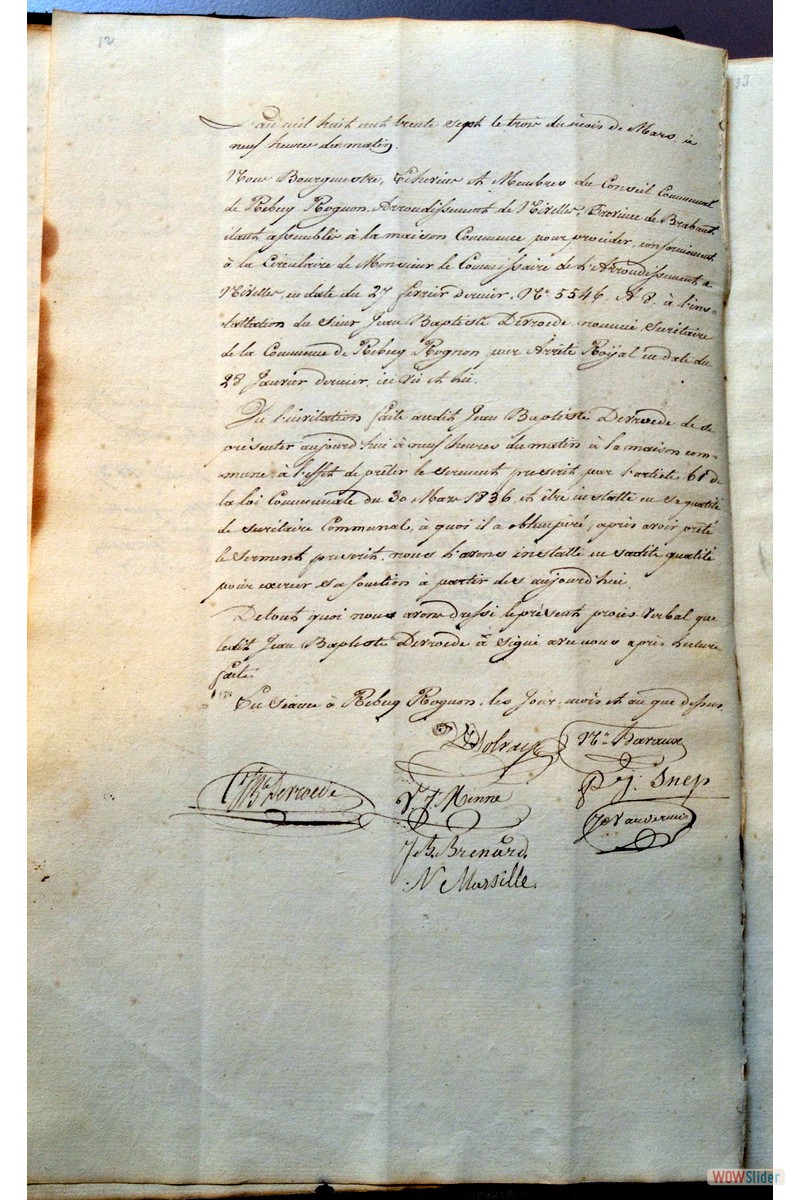 12
13
L'an mil huit cent trente sept le trois du mois de Mars, à
neuf heures du matin.
Nous Bourgmestre, Echevins et Membres du Conseil Communal
de Rebecq Rognon, Arrondissement de Nivelles, Province de Brabant
étant assemblés à la maison Commune pour procéder, conformément
à la Circulaire de Monsieur le Commissaire de l'Arrondissement à
Nivelles, en date du 27 février dernier, N° 5546, à l'ins-
tallation du Sieur Jean Baptiste Derroede, nommé Secrétaire
de la Commune de Rebecq Rognon par Arrêté Royal en date du
28 Janvier dernier, ici
Vu l'invitation faite audit Jean Baptiste Derroede de se
présenter aujourd'hui à neuf heures du matin à la maison com-
mune, à l'effet de prêter le serment prescrit par l'article 61 de
la loi Communale du 30 Mars 1836, et être installé en sa qualité
de secrétaire Communal, à quoi il a obtempéré, après avoir prêté
le Serment prescrit, nous l'avons installé en sadite qualité
pour exercer sa fonction à partir dès aujourd'hui.
De tout quoi nous avons dressé le présent procès verbal que
ledit Jean Baptiste Derroede à signé avec nous après lecture
faite.
En séance à Rebecq Rognon, les Jour, mois et an que dessus.
JBte Derroede
V. J. Minne
P. J. Snep
J. B. Brenard
N Marsille.
WOWSlider